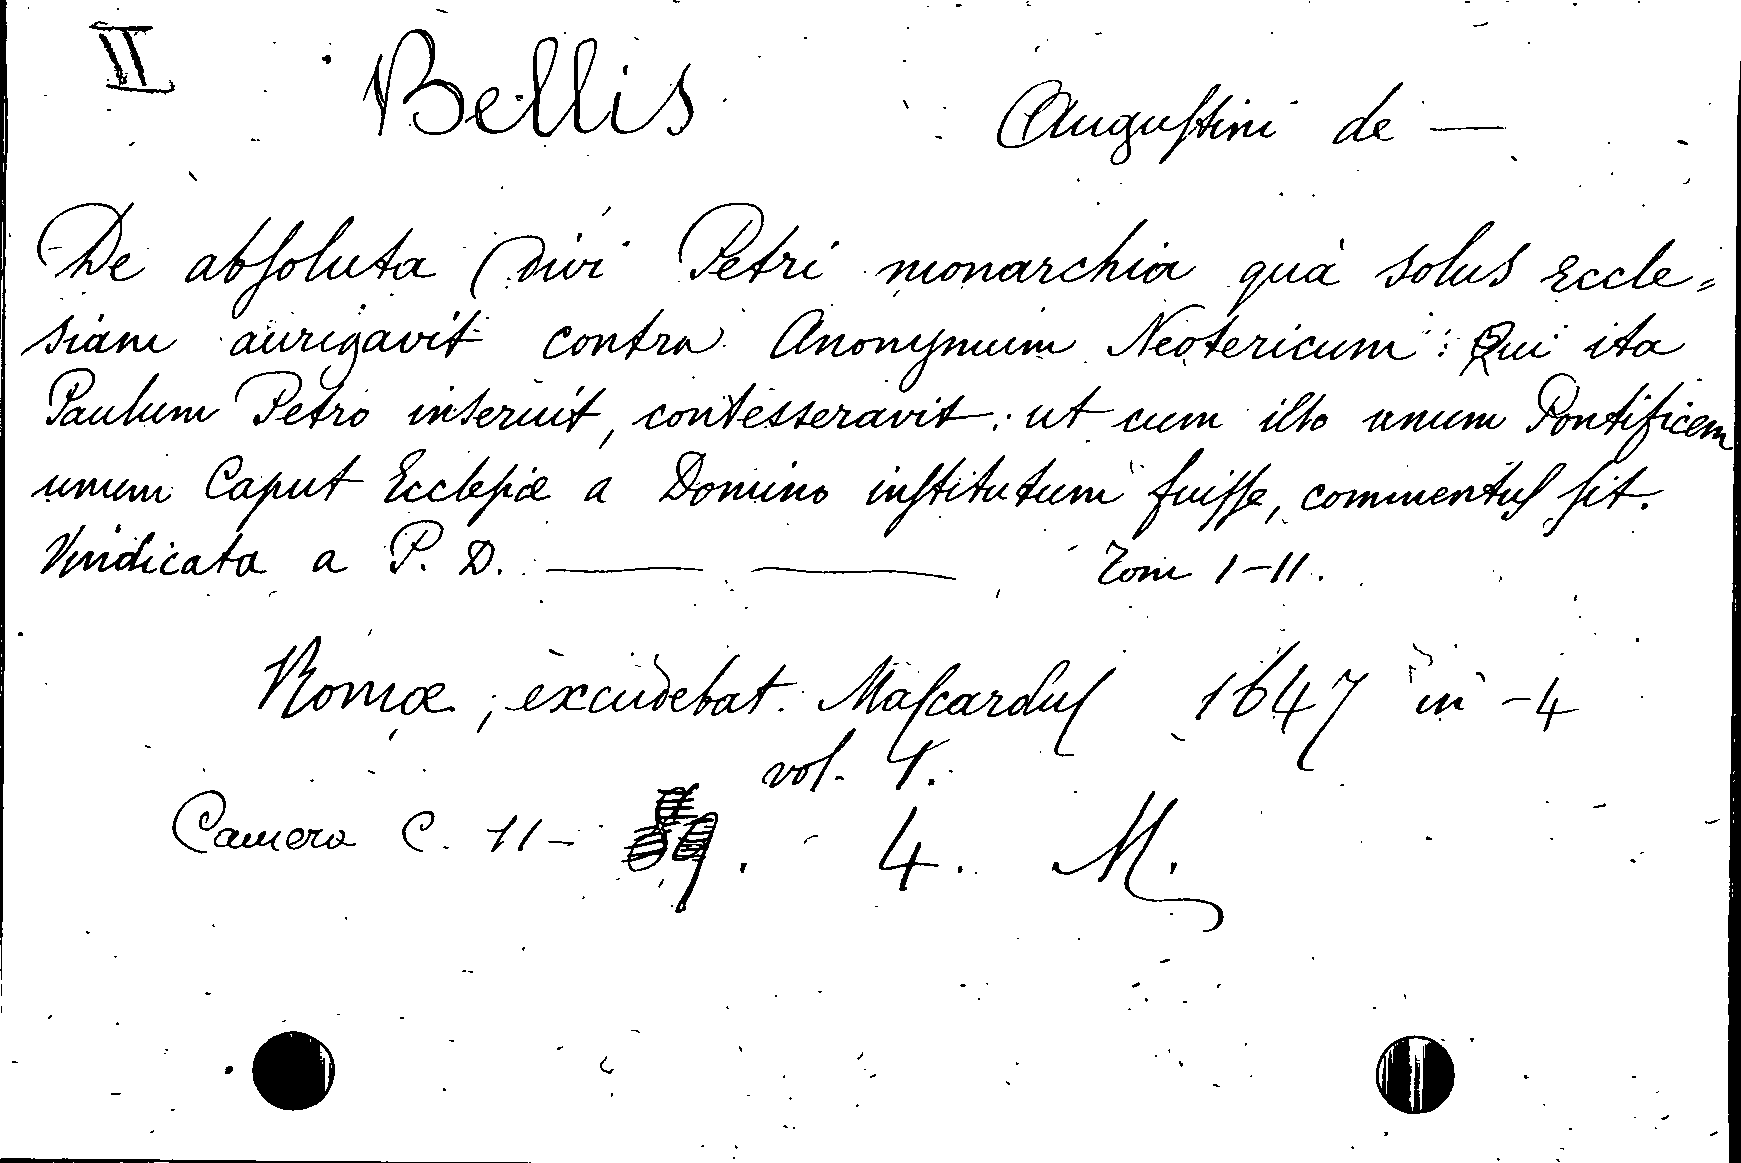 II Bellis Augustini de —
De absoluta Divi Petri monarchia quà solus Eccle=
siam aurigavit contra Anonymum Neotericum: Qui ita
Paulum Petro inseruit, contesseravit: ut cum illo unum Pontificem
unum Caput Ecclesiæ a Domino institutum fuisse, commentus sit.
Vindicata a P. D. —— —— Tom I-II.
Romæ, excudebat Mascardus 1647 in -4
vol. 1.
Camera C. 11- 4. M.